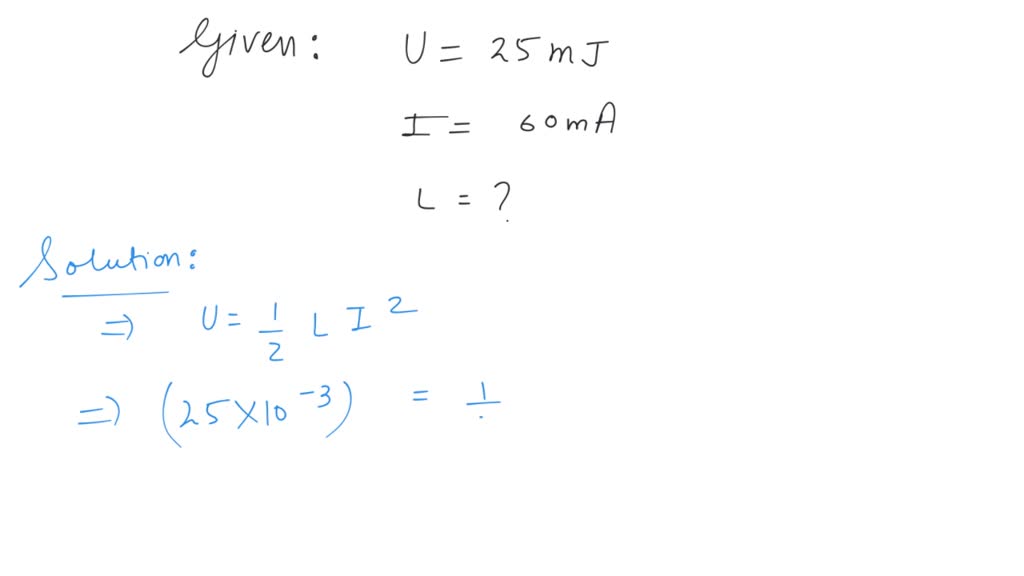 Given: U = 25 mJ
I = 60 mA
L = ?
Solution:
⇒ U = 1/2 L I²
⇒ (25 × 10⁻³) = 1/